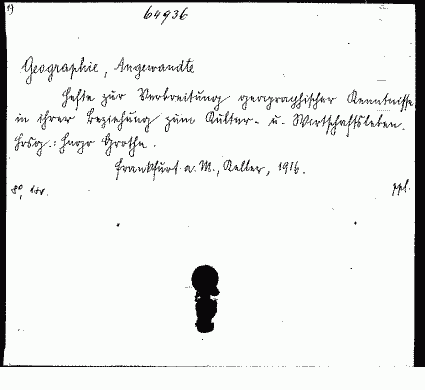 64936
Geographie, Angewandte
Hefte zur Verbreitung geographischer Kenntnisse
in ihrer Beziehung zum Kultur- u. Wirtschaftsleben.
Hrsg.: Hugo Grothe.
Frankfurt a. M., Keller, 1916.
8°,
ppl.